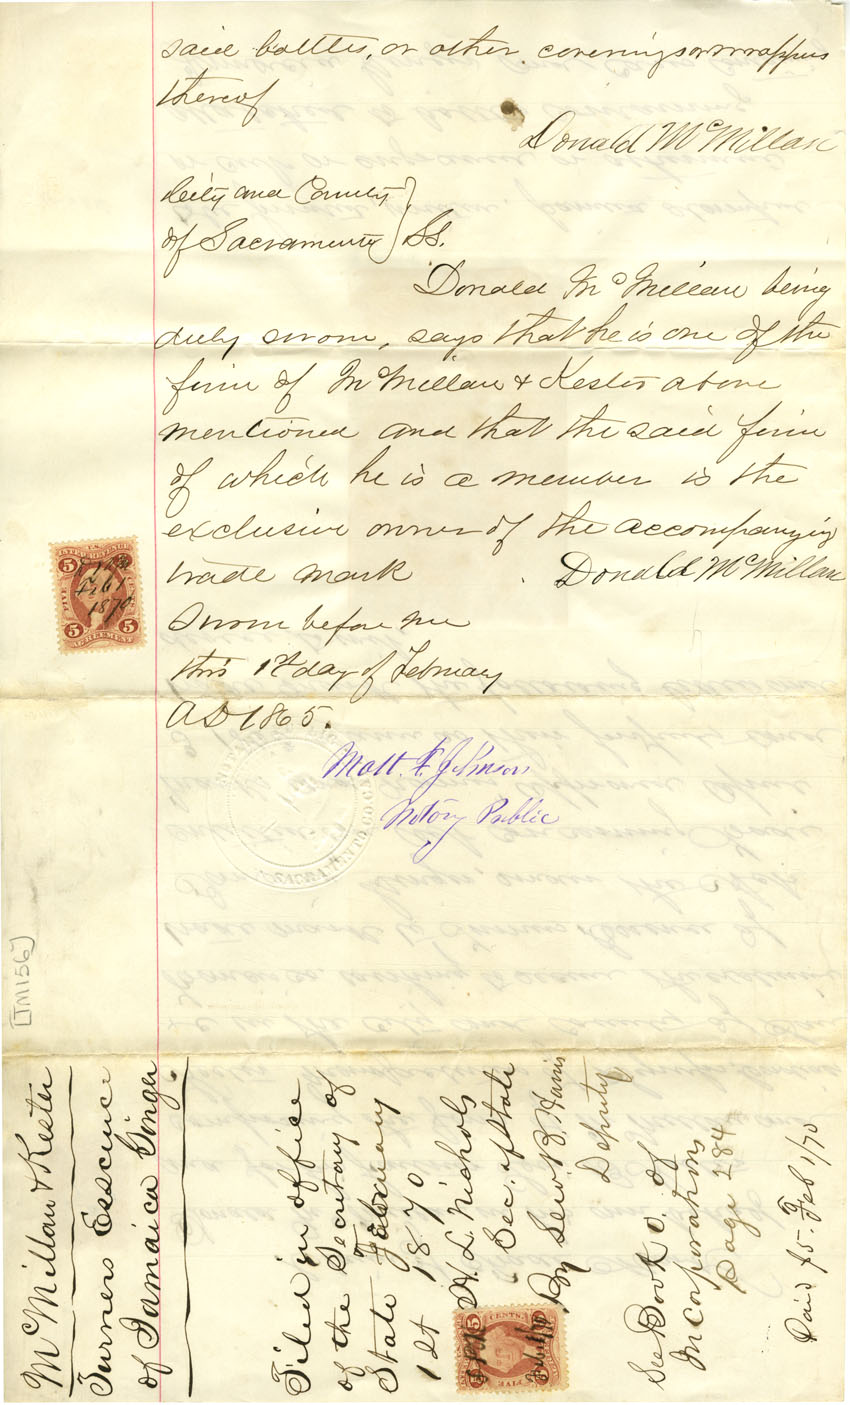 said bottles, or other coverings or wrappers
thereof
Donald McMillan
City and County
of Sacramento } SS.
Donald McMillan being
duly sworn, says that he is one of the
firm of McMillan & Kester above
mentioned and that the said firm
of which he is a member is the
exclusive owner of the accompanying
trade mark
Donald McMillan
Sworn before me
this 1st day of February
AD 1865.
Matt. F. Johnson
Notary Public
U.S.
INTER. REVENUE
5
Feb 1
1870
5 5
FIVE
AGREEMENT
[TM156]
McMillan & Kester
Turners Esscince
of Jamaica Ginger.
Filed in office
of the Secretary of
State February
1st 1870
H. L. Nichols
Sec. of State
By Lew. B. Harris
Deputy
5 CENTS. 5
FIVE
See Book C. of
Incorporations
Page 284
Paid $5. Feb 1/70